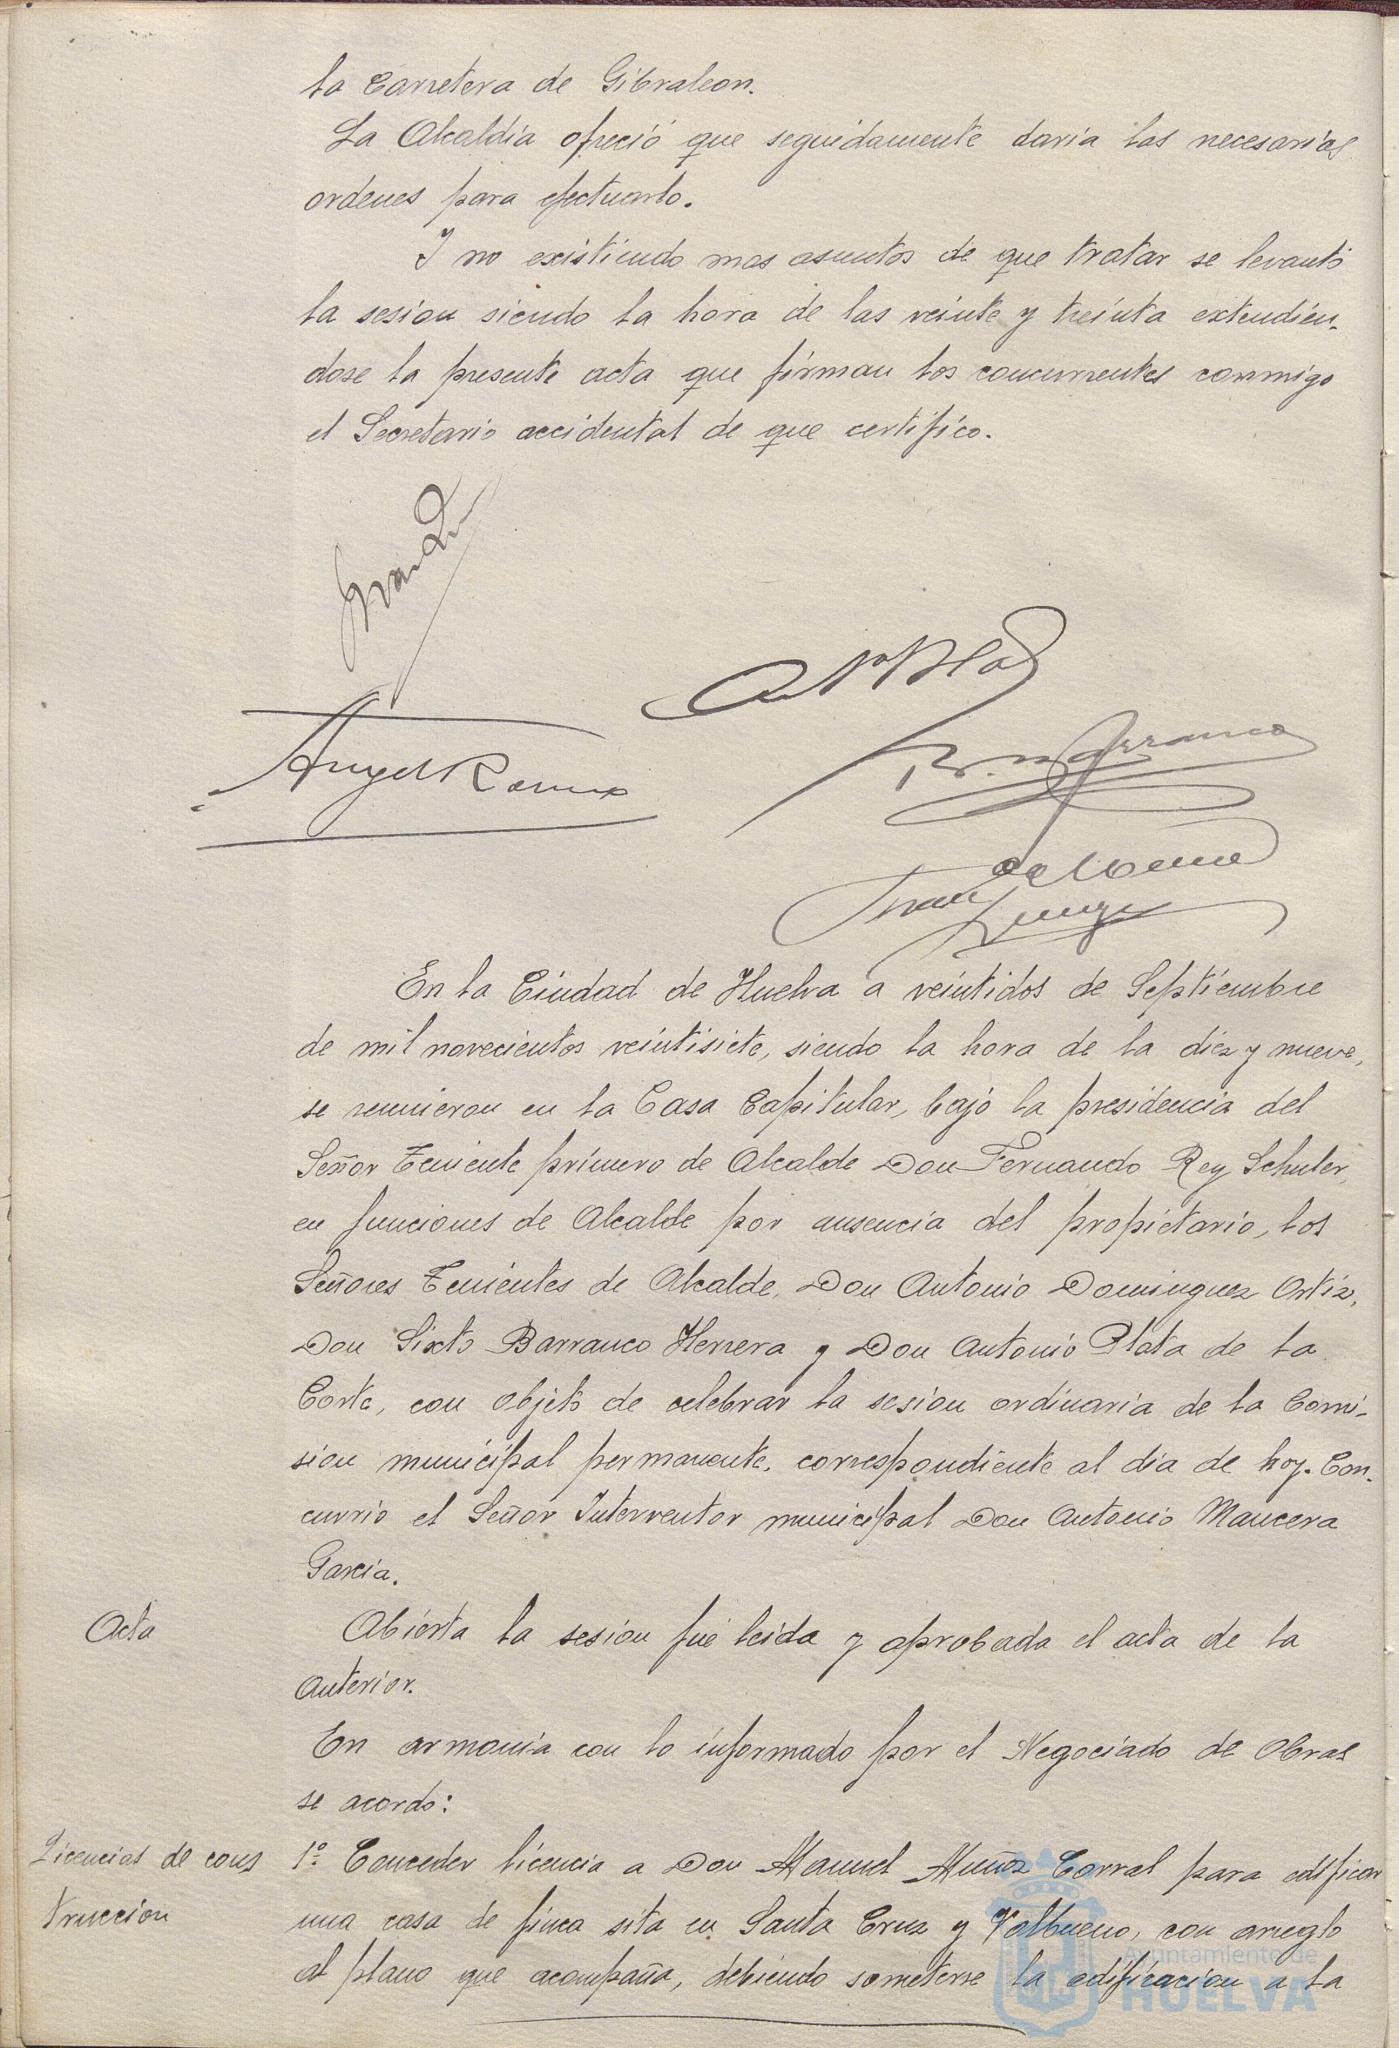 la Carretera de Gibraleon.
La Alcaldia ofreció que seguidamente daria las necesarias
ordenes para efectuarlo.
Y no existiendo mas asuntos de que tratar se levantó
la sesion siendo la hora de las veinte y treinta extendien-
dose la presente acta que firman los concurrentes conmigo
el Secretario accidental de que certifico.
Angel Romero
En la Ciudad de Huelva a veintidos de Septiembre
de mil novecientos veintisiete, siendo la hora de la diez y nueve,
se reunieron en la Casa Capitular, bajo la presidencia del
Señor Teniente primero de Alcalde Don Fernando Rey Schuler,
en funciones de Alcalde por ausencia del propietario, los
Señores Tenientes de Alcalde, Don Antonio Dominguez Ortiz,
Don Sixto Barranco Herrera y Don Antonio Plata de la
Corte, con objeto de celebrar la sesion ordinaria de la Comi-
sion municipal permanente, correspondiente al dia de hoy. Con-
currio el Señor Interventor municipal Don Antonio Mancera
Garcia.
Acta
Abierta la sesion fué leida y aprobada el acta de la
anterior.
En armonia con lo informado por el Negociado de Obras
se acordo:
Licencias de cons
truccion
1º- Conceder licencia a Don Manuel Muñoz Corral para edificar
una casa de finca sita en Santa Cruz y Valbueno, con arreglo
al plano que acompaña, debiendo someterse la edificacion a la
Ayuntamiento de
HUELVA